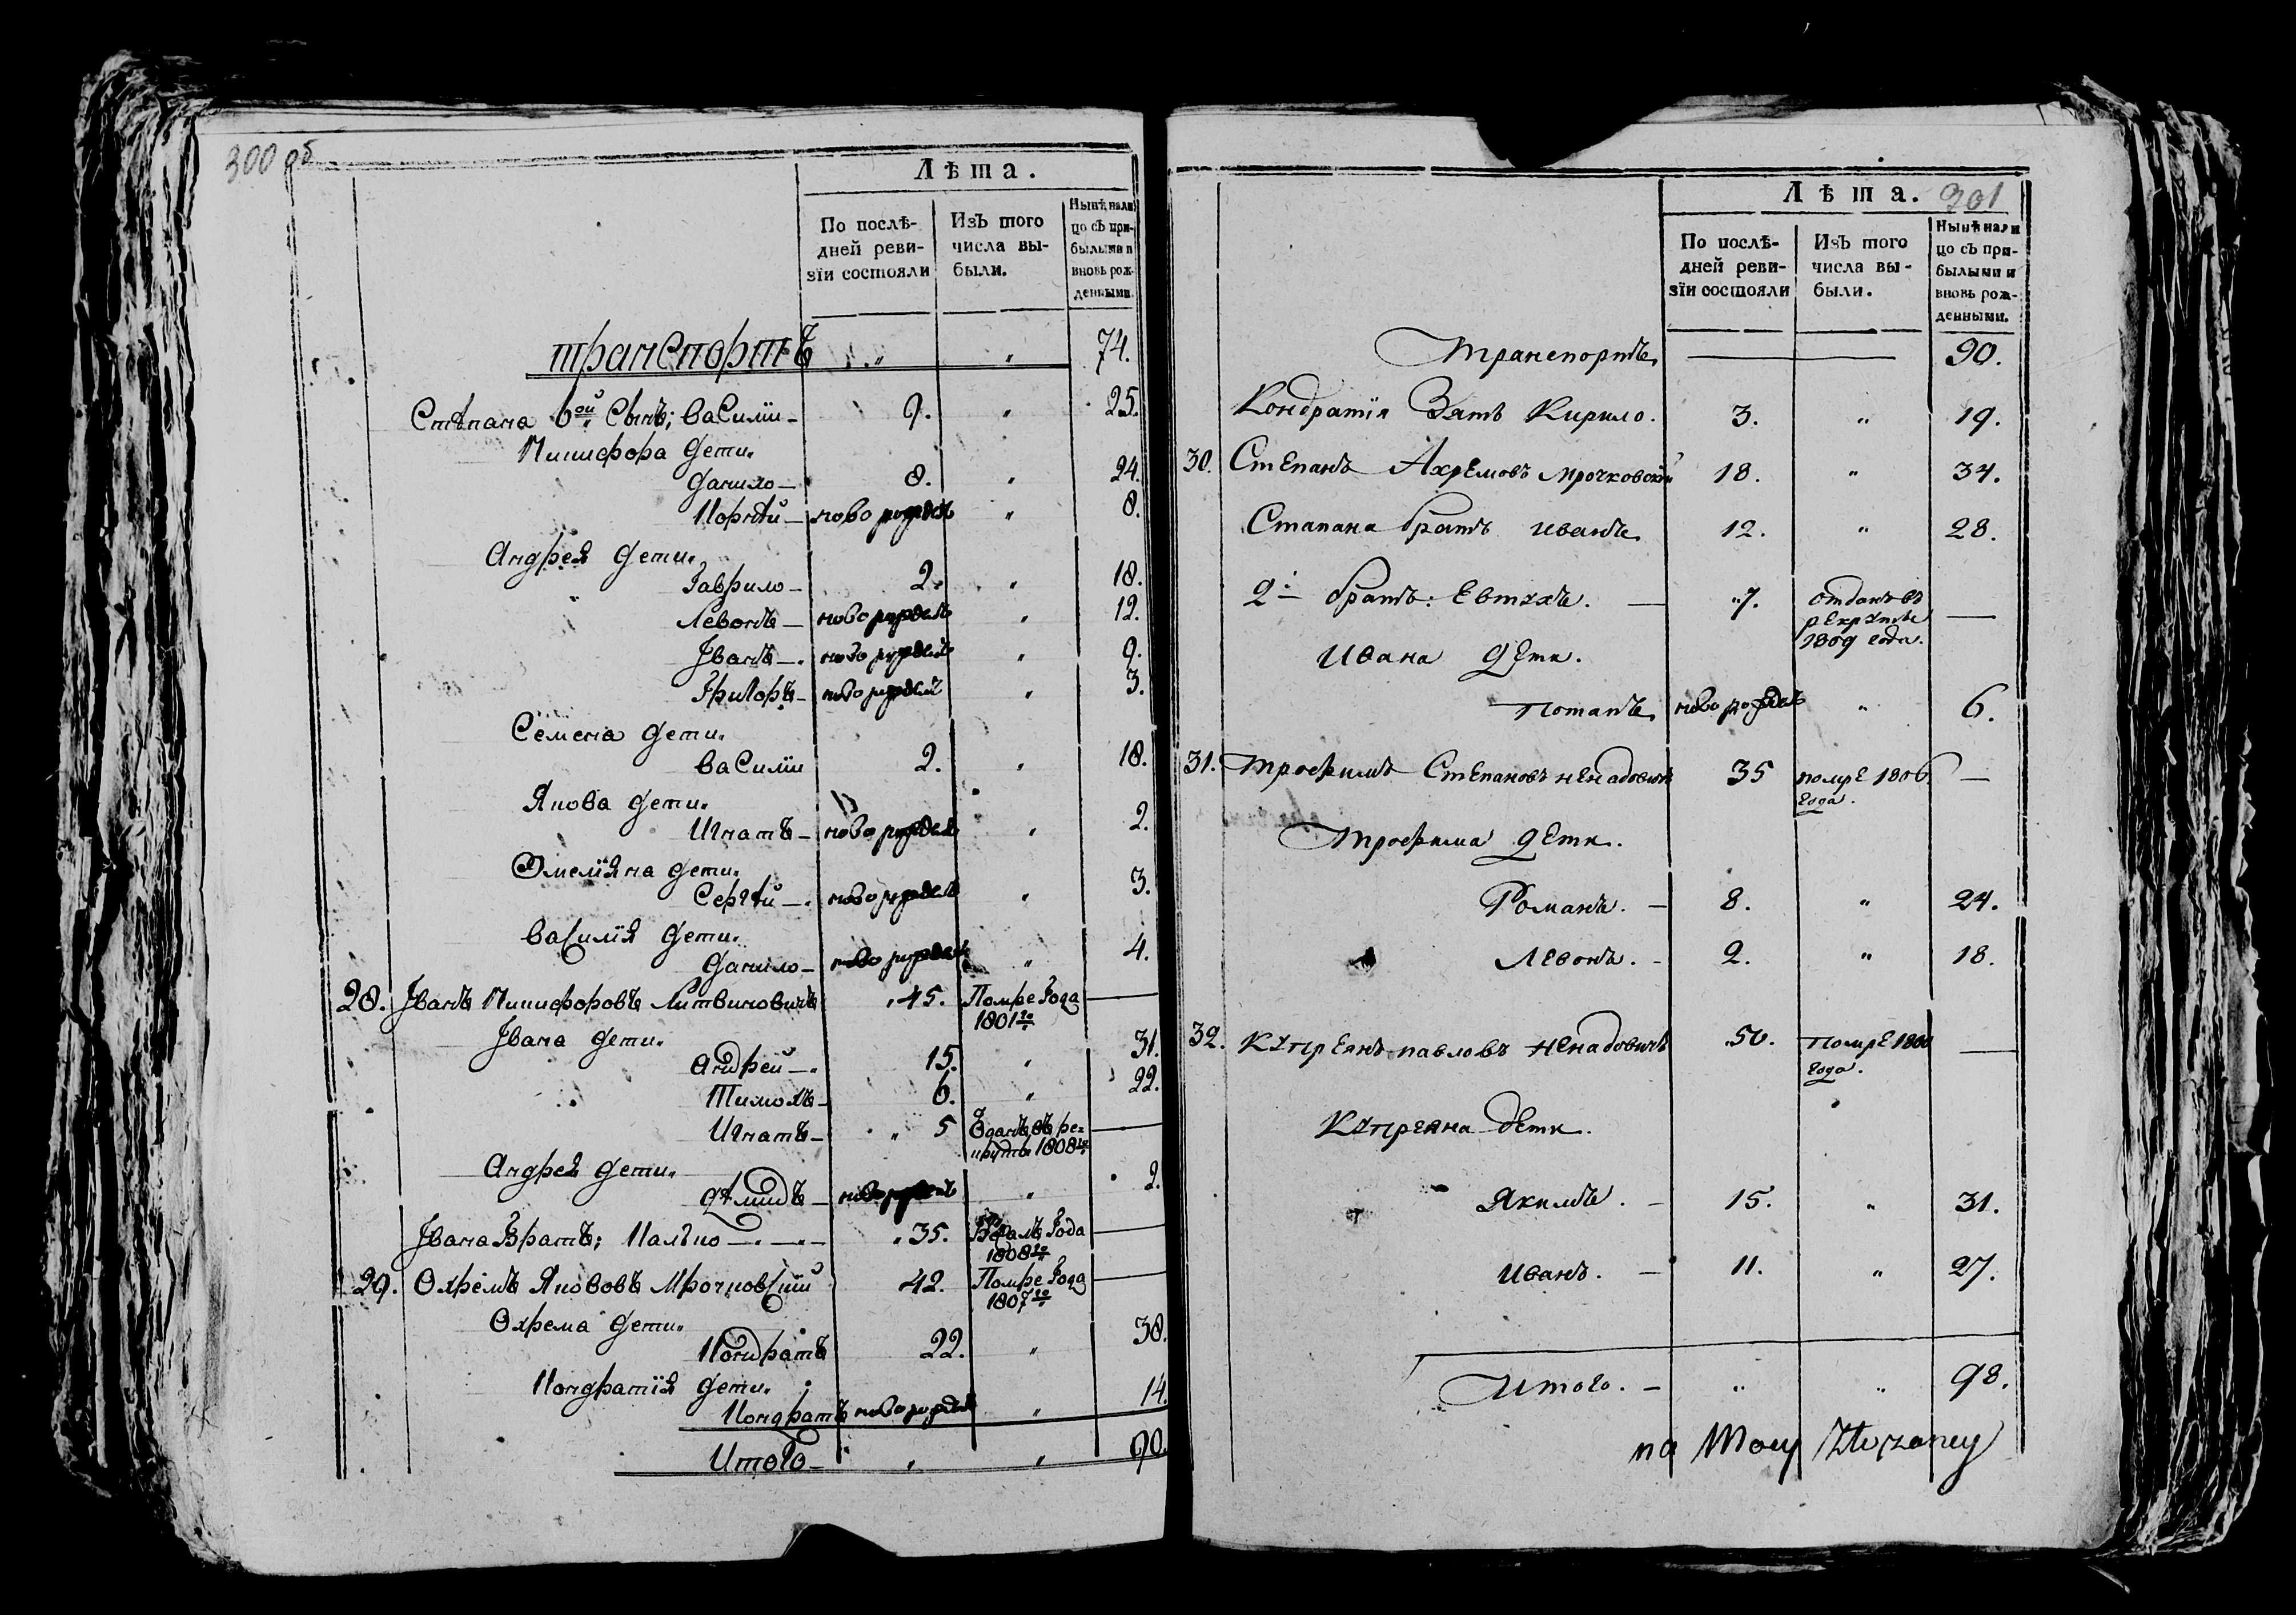 300 об
Лѣта.
По послѣ-
дней реви-
зїи состояли
Изъ того
числа вы-
были.
Нынѣ нали
цо съ при-
былыми и
вновь рож-
денными.
транспортъ " " 74.
Степана 6ой Сынъ; василїи — 9. " 25.
Никифора дети.
данило — 8. " 24.
Корнѣй — ново рожденъ " 8.
Андрея дети.
Гаврило — 2. " 18.
Левонъ — ново рожденъ " 12.
Іванъ — ново рожденъ " 9.
Григоръ — ново рожденъ " 3.
Семена дети.
василїи 2. " 18.
Якова дети.
Игнатъ — ново рожденъ " 2.
Омелїяна дети.
Сергѣй — ново рожденъ " 3.
василїя дети.
данило — ново рожденъ " 4.
28. Іванъ Никифоровъ Литвиновичъ 45. Помре года —
1801го
Івана дети.
андрей — 15. " 31.
Тимохъ — 6. " 22.
Игнатъ — " 5 Оданъ въ ре= —
круты 1808го
Андрея дети.
дѣмидъ — ново рожденъ " 2.
Івана Братъ; Карпо — 35. года —
1808го
29. Охремъ Якововъ Мрочковский 42. Помре года —
1807го
Охрема дети.
Кондратъ 22. " 38.
Кондратїя дети.
Кондратъ ново рожденъ " 14.
Итого — " " 90.
301
Лѣта.
По послѣ-
дней реви-
зїи состояли
Изъ того
числа вы-
были.
Нынѣ нали
цо съ при-
былыми и
вновь рож-
денными.
транспортъ — 90.
Кондратїя Зять Кирило. 3. " 19.
30. Степанъ Ахремовъ мрочковский 18. " 34.
Стапана братъ иванъ. 12. " 28.
2й братъ: Евтухъ. — "7. отданъ въ —
рекруты
1809 года.
Ивана дети.
Потапъ. ново рожденъ " 6.
31. трофимъ Степановъ ненадовичъ 35 помре 1806 —
года.
трофима дети.
Романъ. — 8. " 24.
Левонъ. — 2. " 18.
32. Купреянъ павловъ ненадовичъ 50. помре 1800 —
года.
Купреяна дети.
Якимъ. — 15. " 31.
иванъ. — 11. " 27.
Итого. — " " 98.
na Mocy